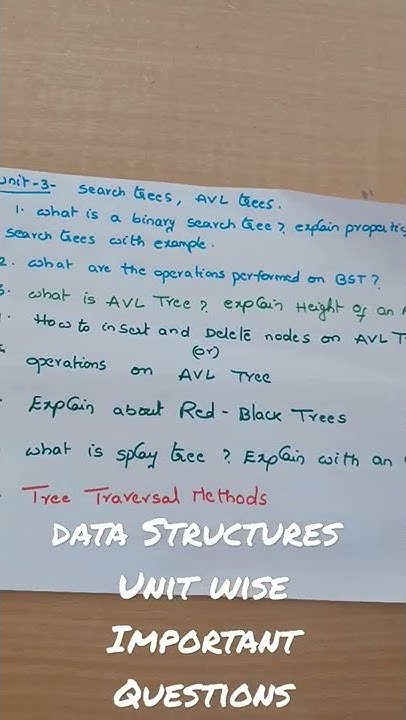 unit-3- search trees, AVL trees.
1. what is a binary search tree? explain
search trees with example.
2. what are the operations performed on BST?
3. what is AVL Tree? explain Height of an
How to insert and Delete nodes on AVL
(or)
operations on AVL Tree
Explain about Red-Black Trees
what is splay tree? Explain with an
Tree Traversal Methods
DATA STRUCTURES
UNIT WISE
IMPORTANT
QUESTIONS